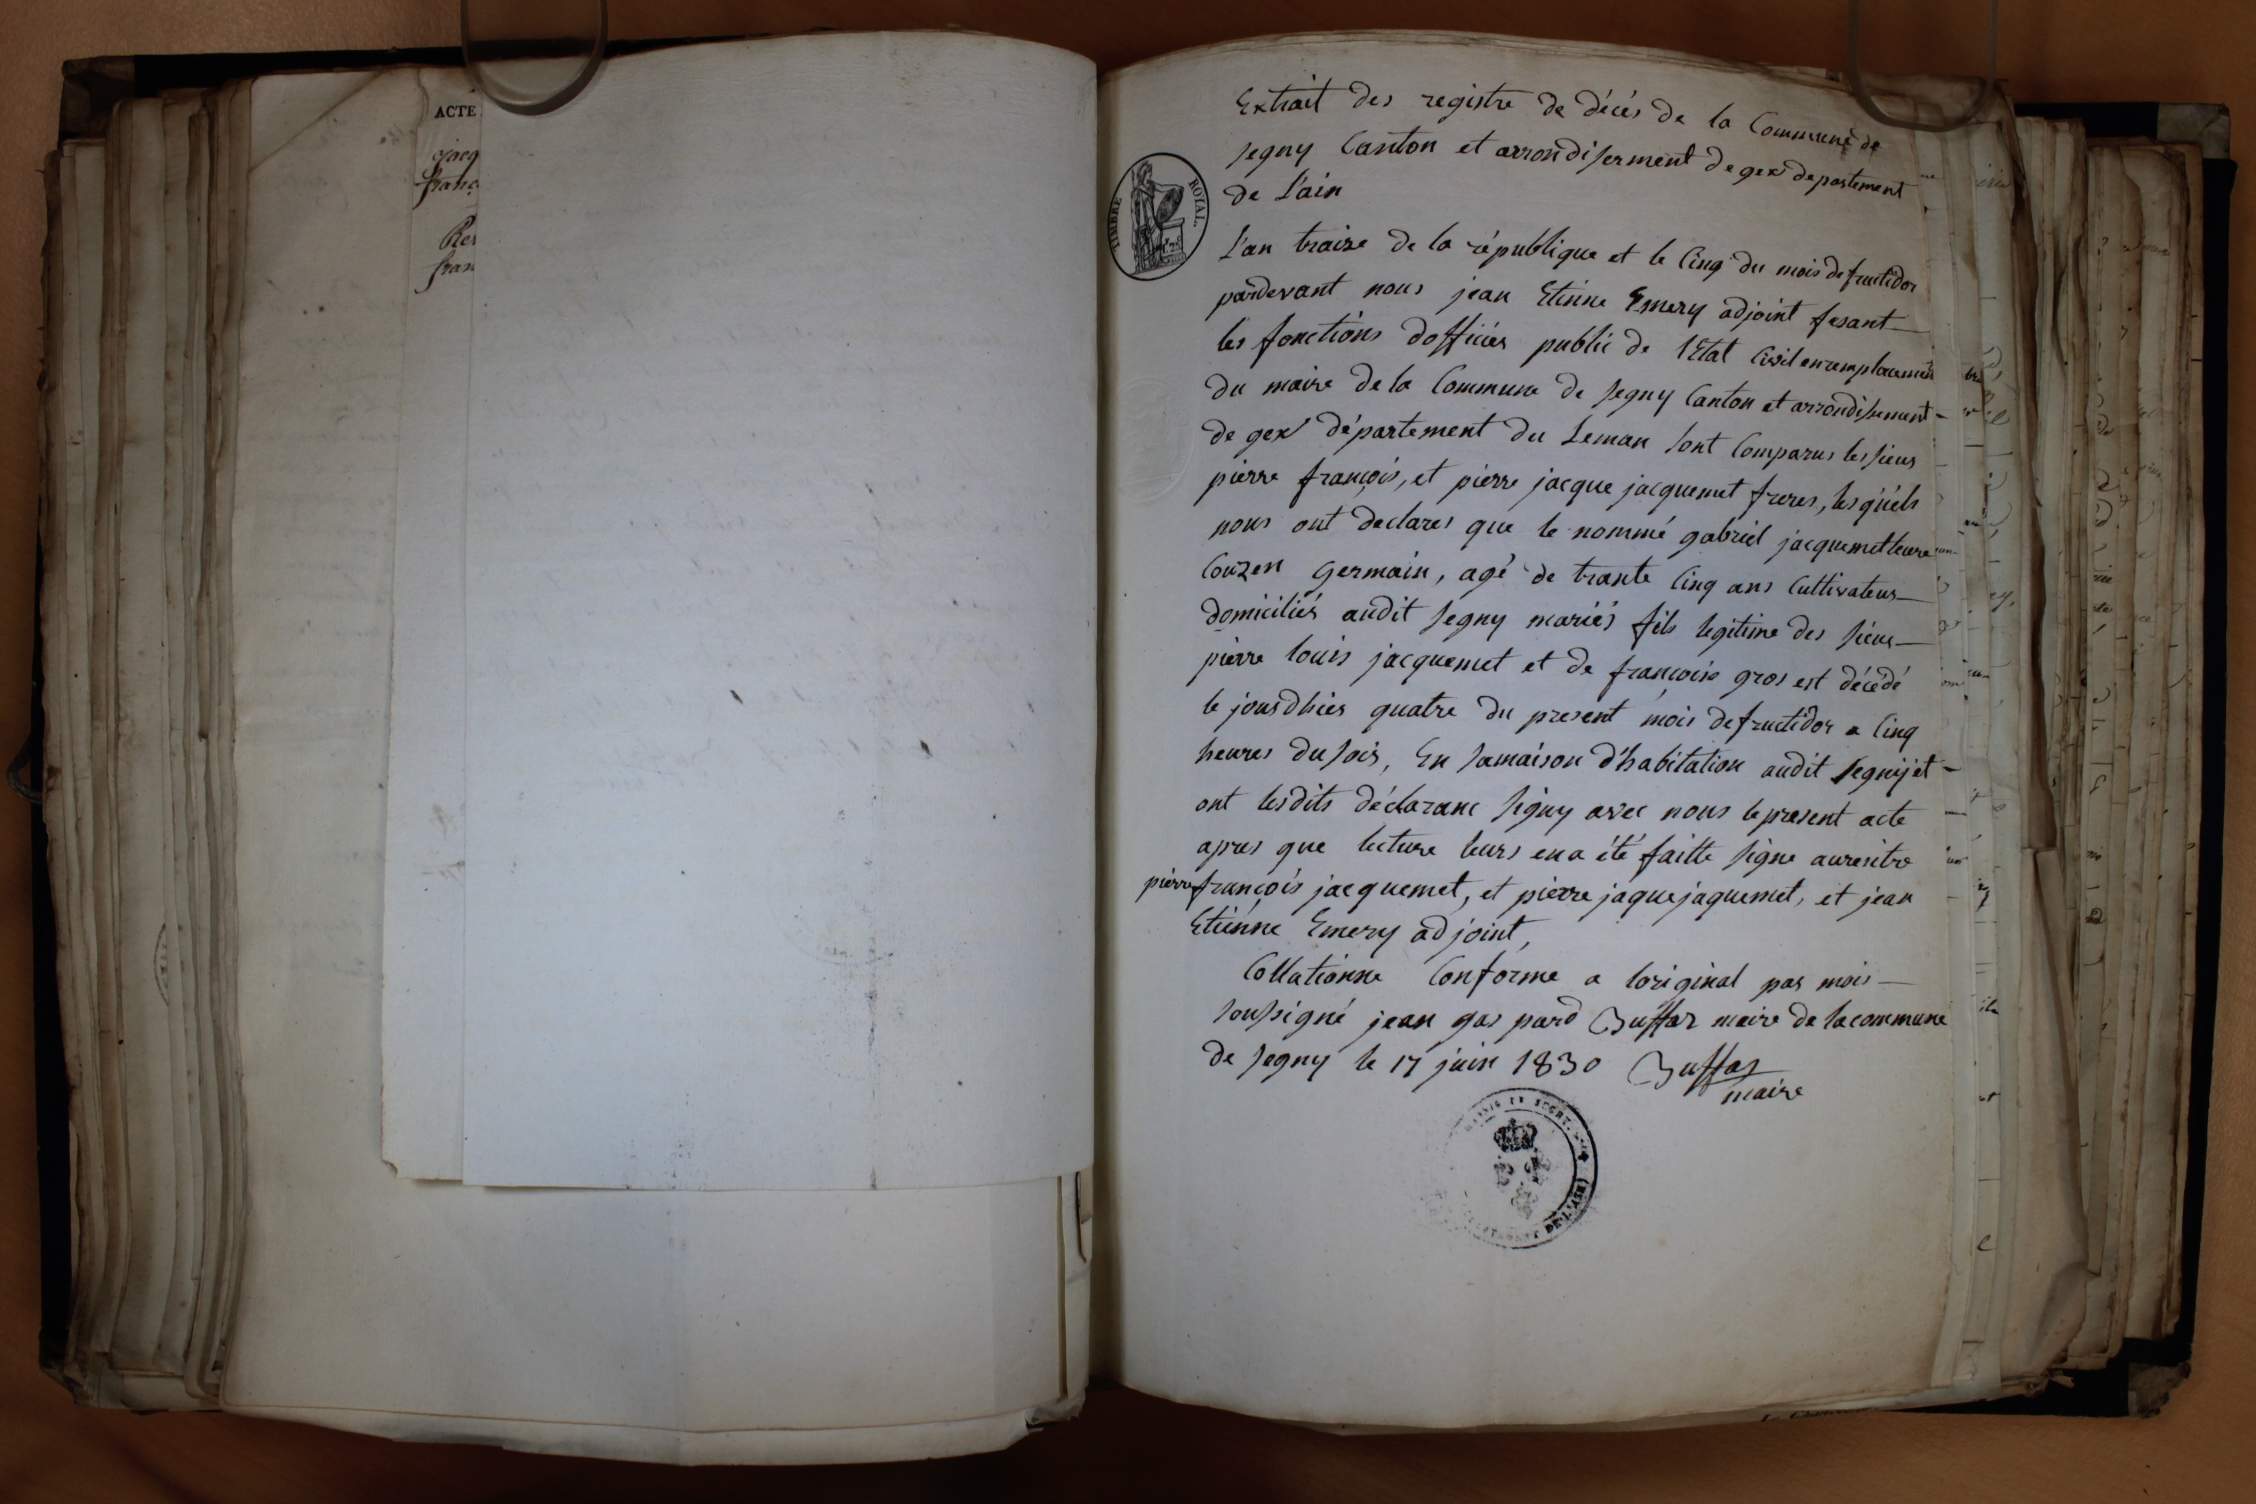 ACTE
jacq
franç
Rey
fran
Extrait des registre de décés de la Commune de
segny Canton et arrondisserment de gex departement
de L'ain
TIMBRE ROYAL
L'an traize de la république et le Cinq du mois de fructidor
pardevant nous jean Etinne Emery adjoint fesant
les fonctions dofficier public de l'Etat Civil en remplacement
du maire de la Commune de segny Canton et arrondisement
de gex département du Leman sont Comparus les sieurs
pierre françois, et pierre jacque jacquemet freres, lesquels
nous ont declares que le nommé gabriel jacquemet leure
Couzen Germain, agé de trante Cinq ans Cultivateur
domiciliés audit segny mariés fils legitime des sieur
pierre louis jacquemet et de françoise gros est décédé
le jour dhier quatre du present mois de fructidor a Cinq
heures du soir, En sa maison d'habitation audit segny et
ont lesdits déclaranc signy avec nous le present acte
apres que lecture leurs en a été faitte signe au resitre
pierre françois jacquemet, et pierre jaque jaquemet, et jean
Etiénne Emery adjoint,
Collationne Conforme a loriginal par mois
soussigné jean gas pard Buffar maire de la commune
de segny le 17 juin 1830 Buffar
maire
MAIRIE DE SEGNY
DE L'AIN